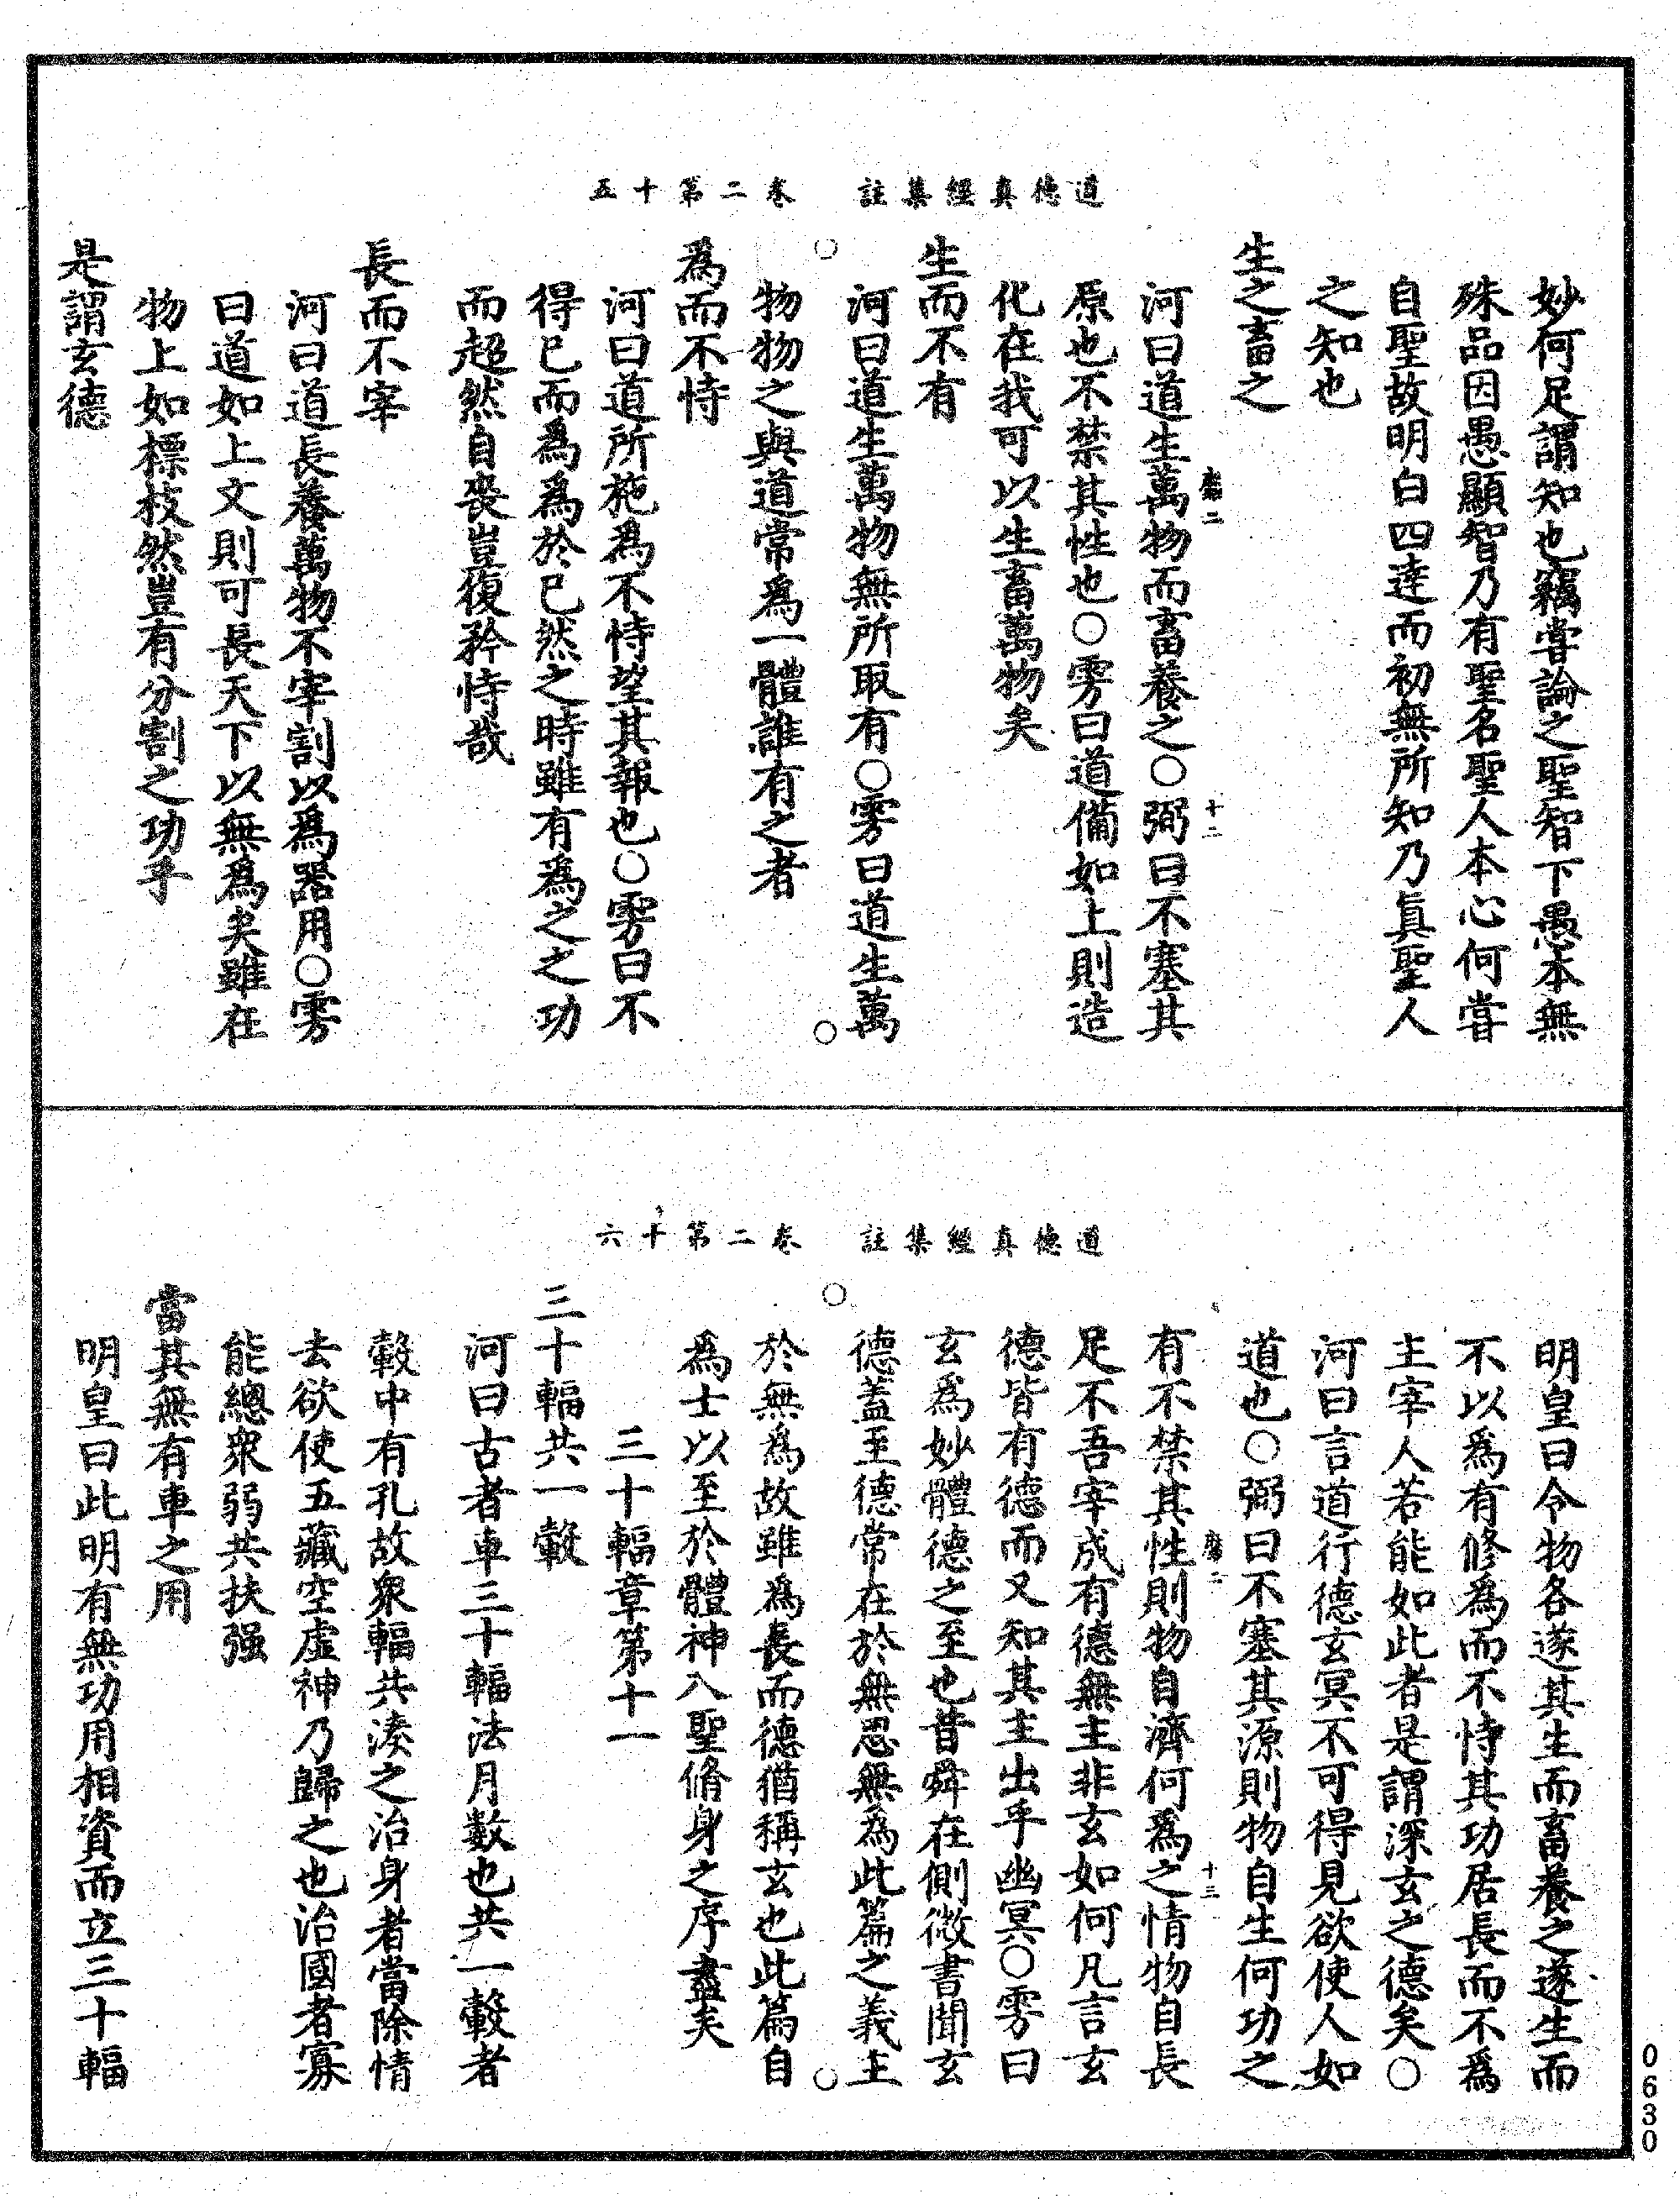 道德真經集註　卷二第十五
妙何足謂知也竊嘗論之聖智下愚本無
殊品因愚顯智乃有聖名聖人本心何嘗
自聖故明白四達而初無所知乃真聖人
之知也
生之畜之
河曰道生萬物而畜養之○弼曰不塞其
原也不禁其性也○雱曰道備如上則造
化在我可以生畜萬物矣
生而不有
河曰道生萬物無所取有○雱曰道生萬
物物之與道常爲一體誰有之者
為而不恃
河曰道所施為不恃望其報也○雱曰不
得已而爲爲於已然之時雖有爲之之功
而超然自喪豈復矜恃哉
長而不宰
河曰道長養萬物不宰割以爲器用○雱
曰道如上文則可長天下以無爲矣雖在
物上如標枝然豈有分割之功乎
是謂玄德
十二
道德真經集註　卷二第十六
明皇曰令物各遂其生而畜養之遂生而
不以爲有修爲而不恃其功居長而不爲
主宰人若能如此者是謂深玄之德矣○
河曰言道行德玄冥不可得見欲使人如
道也○弼曰不塞其源則物自生何功之
有不禁其性則物自濟何爲之情物自長
足不吾宰成有德無主非玄如何凡言玄
德皆有德而又知其主出乎幽冥○雱曰
玄爲妙體德之至也昔舜在側微書聞玄
德蓋至德常在於無思無為此篇之義主
於無為故雖為長而德猶稱玄也此篇自
爲士以至於體神入聖脩身之序盡矣
三十輻章第十一
三十輻共一轂
河曰古者車三十輻法月數也共一轂者
轂中有孔故衆輻共湊之治身者當除情
去欲使五藏空虛神乃歸之也治國者寡
能總衆弱共扶强
當其無有車之用
明皇曰此明有無功用相資而立三十輻
十三
0630